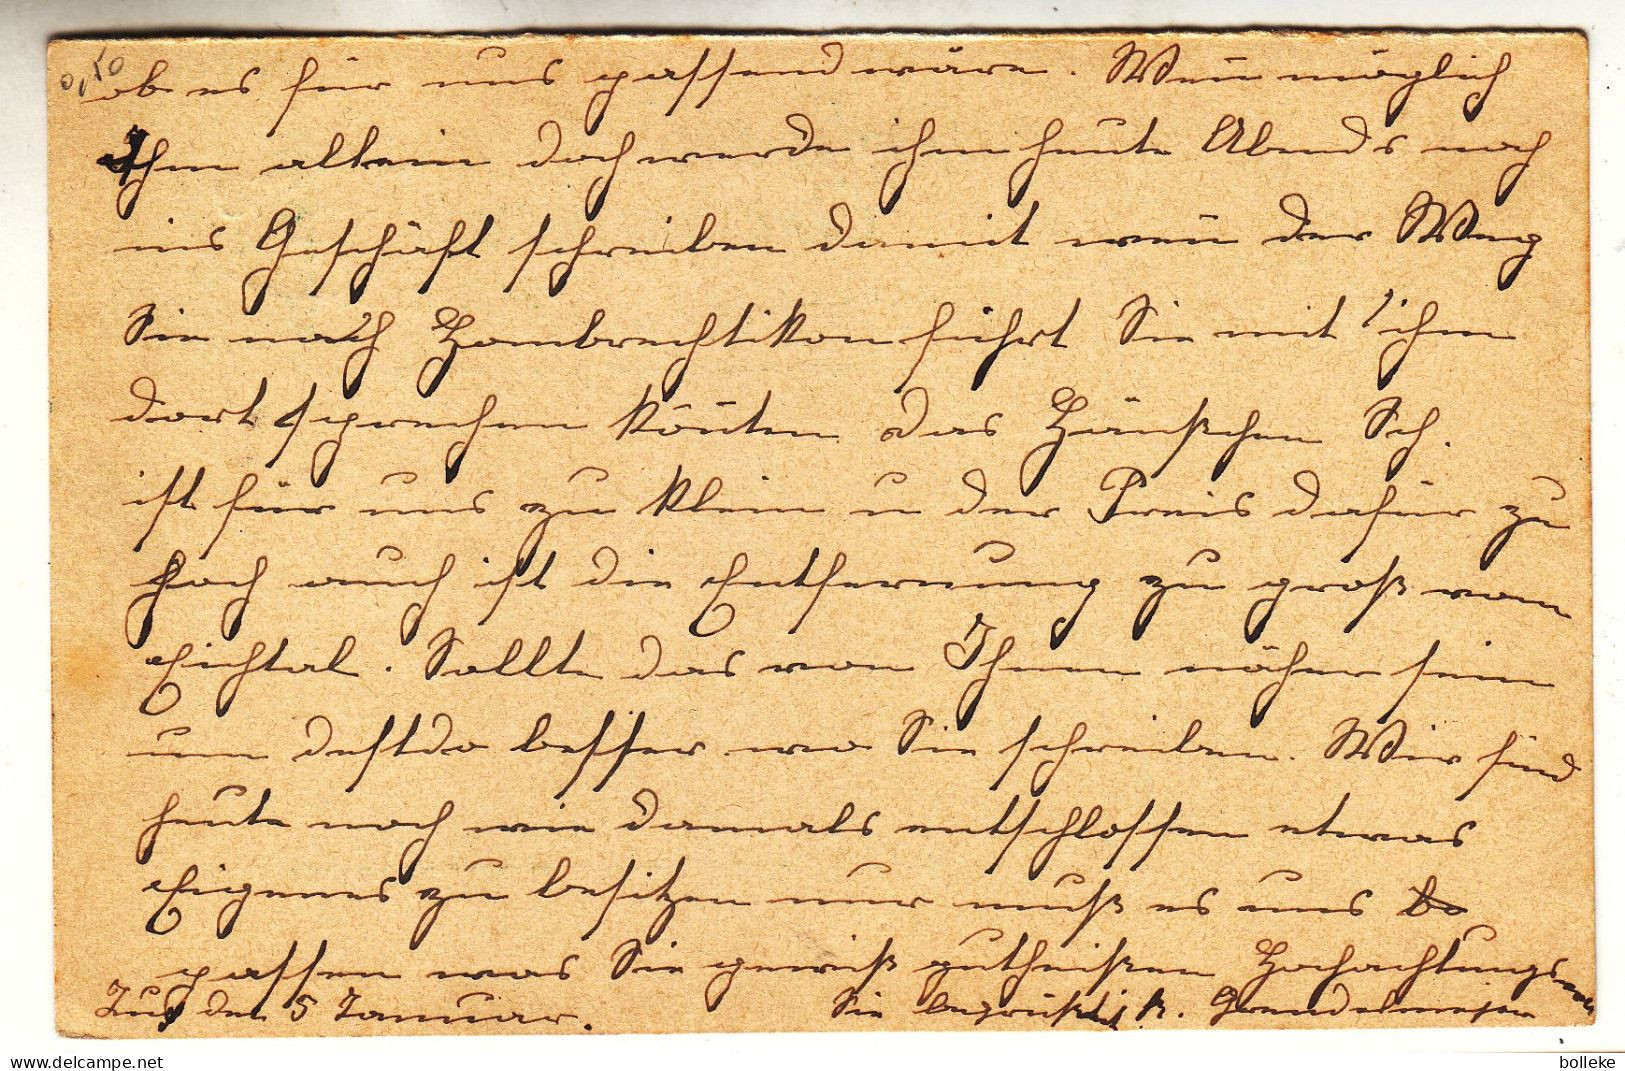 0,50
ob es für uns passend wäre. Weñ möglich
Ihm allein doch werde ihm heute Abends noch
ins Geschäft schreiben damit weñ der Weg
Sie nach Hombrechtikon führt Sie mit ihm
dort sprechen köñten das Häußchen Sch.
ist für uns zu klein u der Preis dafür zu
hoch auch ist die Entfernung zu groß vom
Eichtal. Sollte das von Ihnen näher sein
um destdo besser wo Sie schreiben. Wir sind
heute noch wie damals entschlossen etwas
Eigenes zu besitzen nur muß es uns
passen was Sie gewiß gutheißen Hochachtungsvoll
den 5 Januar. Sie begrüßt K. Grendelmeier
bolleke